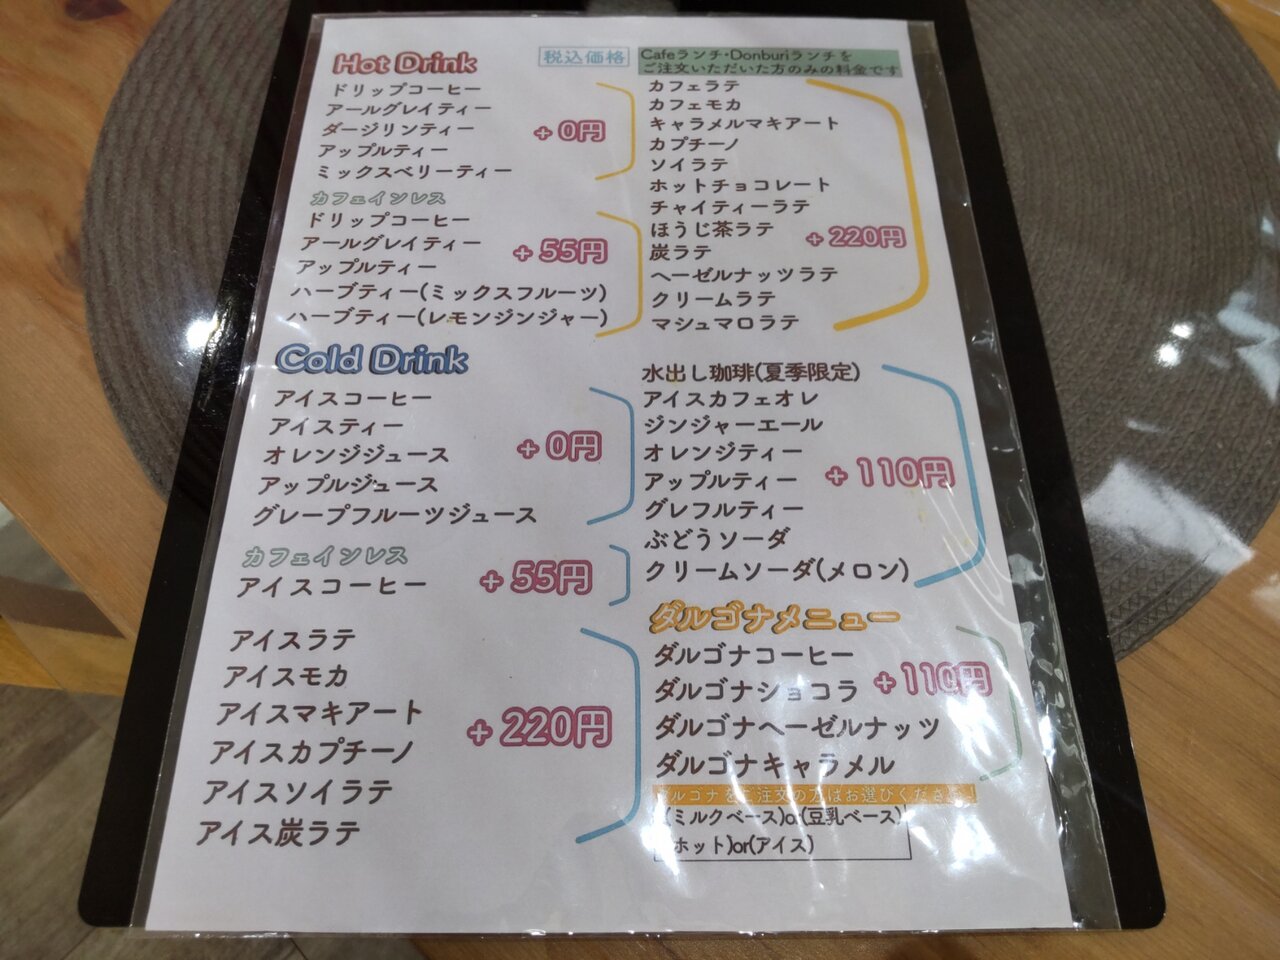 Hot Drink
税込価格
Cafeランチ・Donburiランチを
ご注文いただいた方のみの料金です
ドリップコーヒー
アールグレイティー
ダージリンティー
アップルティー
ミックスベリーティー
+0円
カフェインレス
ドリップコーヒー
アールグレイティー
アップルティー
ハーブティー(ミックスフルーツ)
ハーブティー(レモンジンジャー)
+55円
カフェラテ
カフェモカ
キャラメルマキアート
カプチーノ
ソイラテ
ホットチョコレート
チャイティーラテ
ほうじ茶ラテ
炭ラテ
ヘーゼルナッツラテ
クリームラテ
マシュマロラテ
+220円
Cold Drink
アイスコーヒー
アイスティー
オレンジジュース
アップルジュース
グレープフルーツジュース
+0円
カフェインレス
アイスコーヒー
+55円
アイスラテ
アイスモカ
アイスマキアート
アイスカプチーノ
アイスソイラテ
アイス炭ラテ
+220円
水出し珈琲(夏季限定)
アイスカフェオレ
ジンジャーエール
オレンジティー
アップルティー
グレフルティー
ぶどうソーダ
クリームソーダ(メロン)
+110円
ダルゴナメニュー
ダルゴナコーヒー
ダルゴナショコラ
ダルゴナヘーゼルナッツ
ダルゴナキャラメル
+110円
ダルゴナをご注文の方はお選びください!
(ミルクベース)or(豆乳ベース)
(ホット)or(アイス)